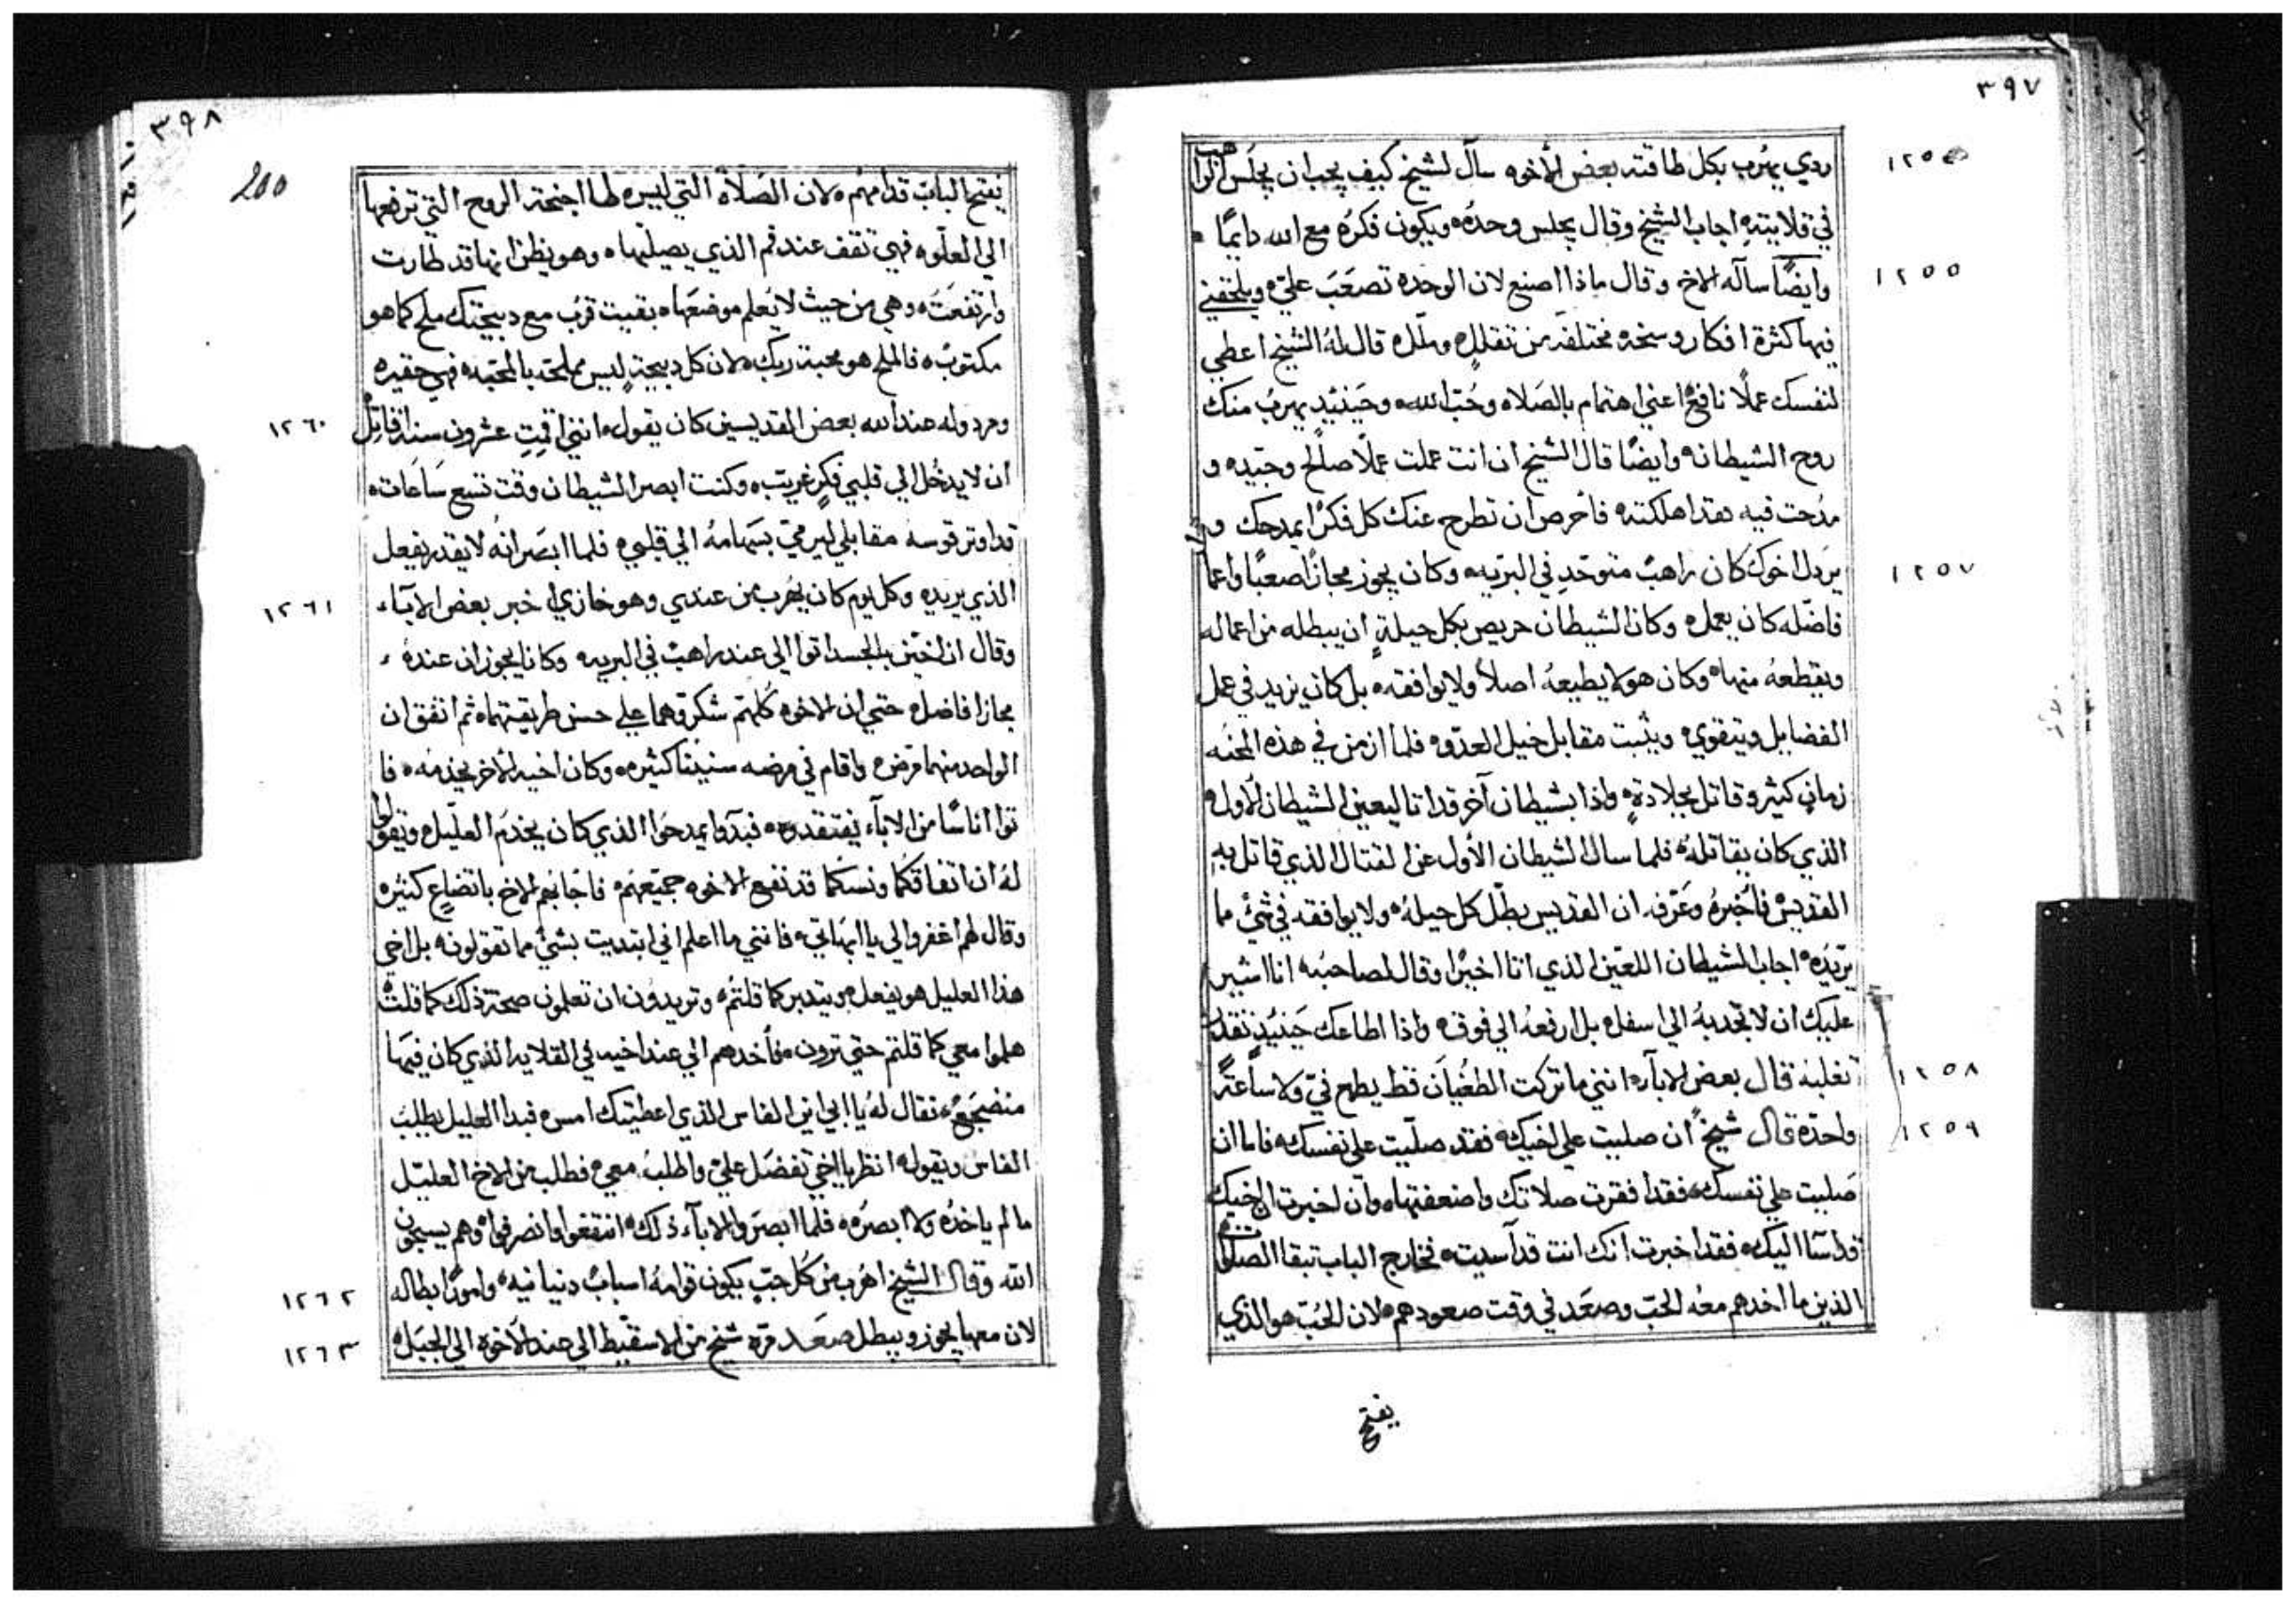 ٣٩٧
١٢٥٤
ردي يهرب بكل طاقته بعض الأخوه سال لشيخ كيف يجب ان يجلس الراهب
في قلايته اجاب الشيخ وقال يجلس وحده ويكون فكره مع الله دايمًا
١٢٥٥
وايضًا ساله الاخ وقال ماذا اصنع لان الوحده تصعب علي ويلحقني
فيها كثرة افكار وسخه مختلفه من تقلل وملل قال له الشيخ اعطي
لنفسك عملًا نافع اعني اهتمام بالصلاه وحب الله وحينيد يهرب منك
روح الشيطان وايضًا قال الشيخ ان انت عملت عملًا صالح وجيد و
مدحت فيه فقد اهلكته فاحرص ان تطرح عنك كل فكرًا يمدحك و
١٢٥٧
يردل اخوك كان راهب متوحد في البريه وكان يجوز مجازًا صعبًا واعما
فاضله كان يعمل وكان الشيطان حريص بكل حيلة ان يبطله من اعماله
ويقطعه منها وكان هو لا يطيعه اصلاً ولا يوافقه بل كان يزيد في عمل
الفضايل ويتقوي ويثبت مقابل خيل العدو فلما ازمن في هذه المحنه
زمان كثير وقاتل بجلادة واذا بشيطان آخر قد اتا ليعين الشيطان الاول
الذي كان يقاتله فلما سال الشيطان الأول عن القتال الذي قاتل به
القديس فأخبره وعرفه ان القديس بطّل كل حيله ولا يوافقه في شئ مما
يريده اجاب الشيطان اللعين الذي اتا اخيرًا وقال لصاحبه انا اشير
عليك ان لا تجدبه الي اسفل بل ارفعه الي فوق واذا اطاعك حينيذ تقدر
١٢٥٨
تغلبه قال بعض الاباء انني ما تركت الطغيان قط يطمع فيّ ولا ساعة
١٢٥٩
واحدة قال شيخ ان صليت علي اخيك فقد صليت علي نفسك فاما ان
صليت علي نفسك فقد افقرت صلاتك واضعفتها وان اخبرت ان اخيك
قد اسا اليك فقد اخبرت انك انت قد آسيت فخارج الباب تبقا الصلوات
الذين ما اخدهم معه الحب وصعد في وقت صعودهم لان الحب هو الذي
يفتح
٣٩٨
200
يفتح الباب قدامهم لان الصلاة التي ليس لها اجنحة الروح التي ترفعها
الي العلو فهي تقف عند فم الذي يصليها وهو يظن انها قد طارت
وارتفعت وهي من حيث لا يعلم موضعها بقيت قرب مع دبيحتك ملح كما هو
مكتوب فالملح هو محبة ربك لان كل دبيحة ليس مملحه بالمحبه فهي حقيره
١٢٦٠
ومردوله عند الله بعض القديسين كان يقول انني اقمت عشرون سنه اقاتل
ان لا يدخل الي قلبي فكر غريب وكنت ابصر الشيطان وقت تسع ساعات
قد اوتر قوسه مقابلي ليرمي بسهامه الي قلبي فلما ابصر انه لا يقدر يفعل
١٢٦١
الذي يريد وكل يوم كان يهرب من عندي وهو خازي اخبر بعض الاباء
وقال ان اخين بالجسد اتوا الي عند راهب في البريه وكانا يجوزان عنده
مجازا فاضل حتي ان الاخوه كلهم شكروهما علي حسن طريقتهما ثم اتفق ان
الواحد منهما مرض واقام في مرضه سنينًا كثيره وكان اخيه الآخر يخدمه فا
توا اناسًا من الاباء يفتقدوه فبدوا يمدحوا الذي كان يخدم العليل ويقولوا
له ان اتفاقكما ونسككما قد نفع الاخوه جميعهم فاجابهم الاخ باتضاع كثير
وقال لهم اغفروا لي يا ابهاتي فانني ما اعلم اني ابتديت بشئ مما تقولون بل اخي
هذا العليل هو يفعل ويتدبر كما قلتم وتريدون ان تعلمون صحة ذلك كما قلت
هلموا معي كما قلتم حتي ترون فأخدهم الي عند اخيه في القلايه الذي كان فيها
منضجع فقال له يا ابي اين الفاس الذي اعطيتك امس فبدا العليل يطلب
الفاس ويقول انظر يا اخي تفضل علي واطلب معي فطلب من الاخ العليل
ما لم ياخده ولا ابصره فلما ابصروا الاباء ذلك انتفعوا وانصرفوا وهم يسبحون
١٢٦٢
الله وقال الشيخ اهرب من كل حب يكون قوامه اسباب دنيانيه وامورًا بطاله
١٢٦٣
لان معها يجوز ويبطل صعد مره شيخ من الاسقيط الي عند الاخوه الي الجبل